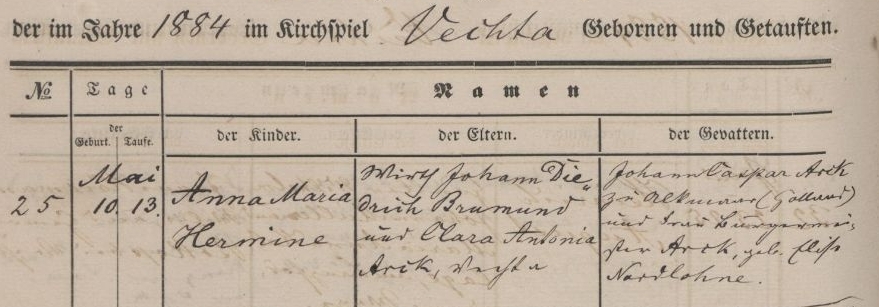 der im Jahre 1884 im Kirchspiel Vechta Gebornen und Getauften.
No Tage Namen
der Geburt. der Taufe. der Kinder. der Eltern. der Gevattern.
25
Mai
10. 13.
Anna Maria
Hermine
Wirth Johann Die„
drich Brumund
und Clara Antonia
Arck, Vechta
Johann Caspar Arck
zu Alkmaar (Holland)
und Frau Bürgermei„
ster Arck, geb. Elise
Nordlohne.